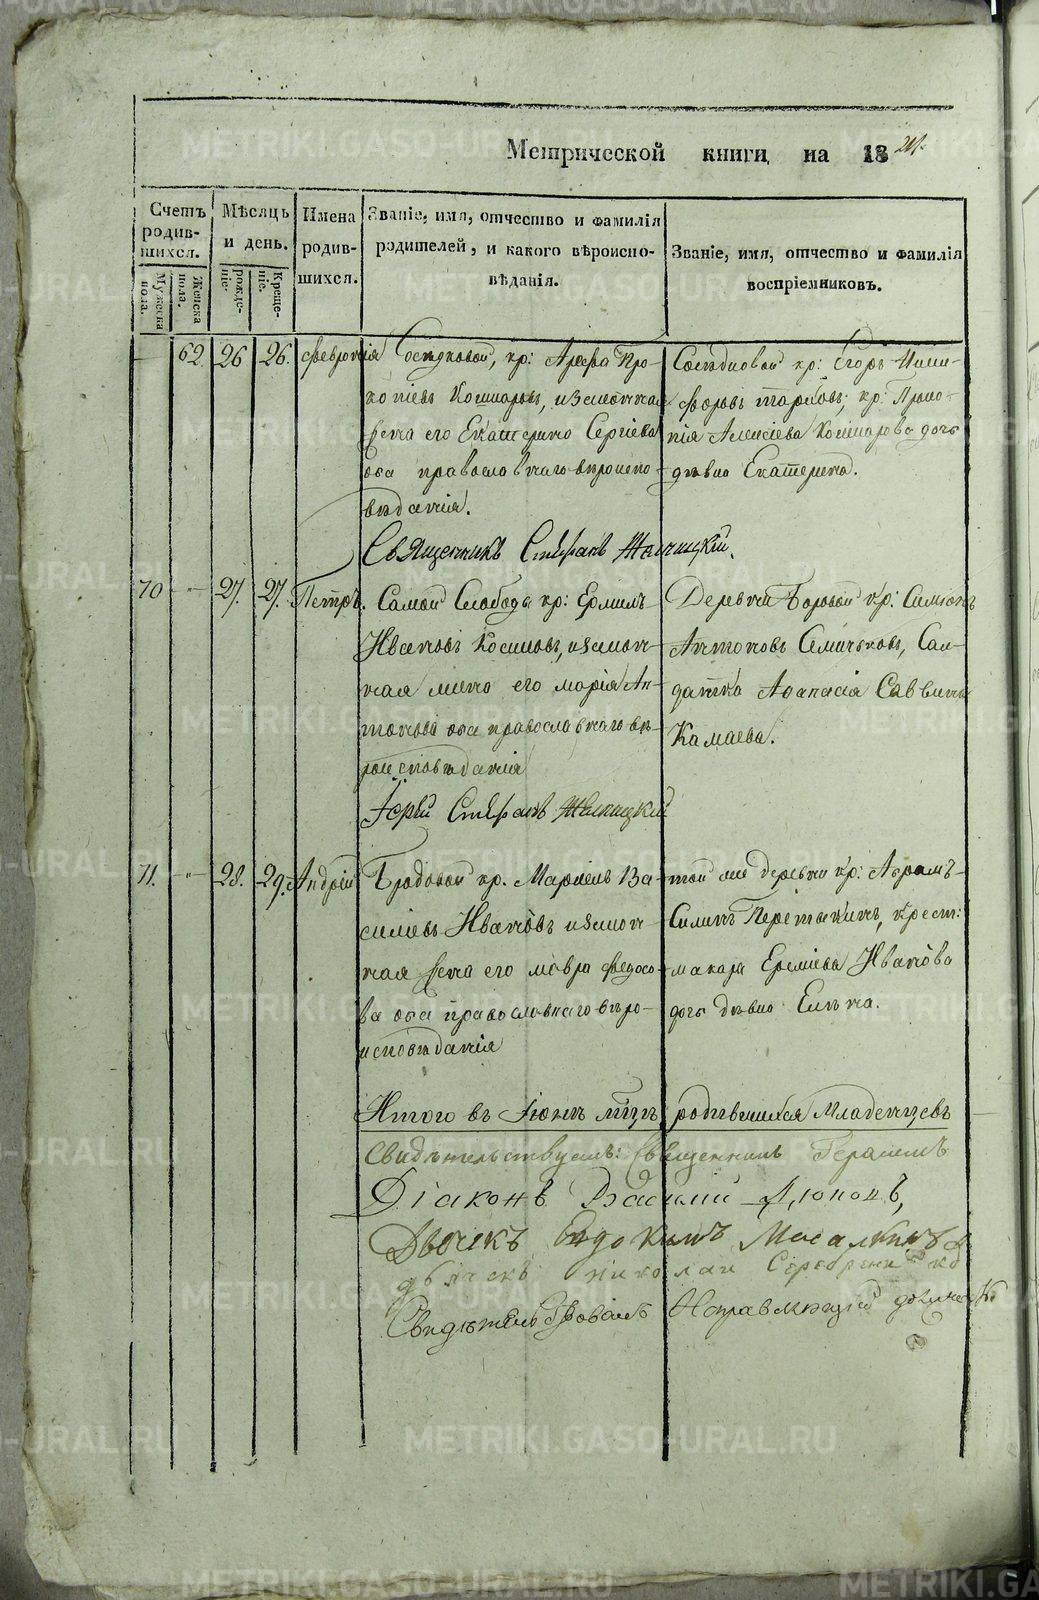 Метрической книги, на 1824.
Счетъ родив-шихся.
Мужеска пола.
Женска пола.
Мѣсяцъ и день.
рожде-ніе.
Креще-ніе.
Имена родив-шихся.
Званіе, имя, отчество и фамилія родителей, и какого вѣроиспо-вѣданія.
Званіе, имя, отчество и фамилія воспріемниковъ.
62 26 26. Февронія
кр: Арефа Про-
копіевъ Кошкаровъ, изаконная
жена его Екатерина Сергіева
оба православнаго вѣроиспо-
вѣданія.
кр: Егоръ Ники-
форовъ кр: Проко-
пія Алексіева Кошкарова дочь
дѣвка Екатерина.
Священникъ Стефанъ
70 27. 27. Петръ.
Самой Слободы кр: Ермилъ
Ивановъ Косиновъ, изакон-
ная жена его Марія Ан-
тонова оба православнаго вѣ-
роисповѣданія
Деревни Боровой кр: Симіонъ
Антоновъ Сол-
датка Афанасія Саввина
Камаева.
Іерей Стефанъ
71. 28. 29. Андрій
Бродовой кр. Маркелъ Ва-
силіевъ Ивановъ изакон-
ная жена его Мавра Федосо-
ва оба православнаго вѣро-
исповѣданія
той же деревни кр: Абрамъ
Силинъ Перетыкинъ, крест:
макара Ереміева Иванова
дочь дѣвка Елена.
Итого въ Іюнѣ мцѣ родившихся Младенцевъ
Свидѣтельствуемъ: Священникъ Герасимъ
Діаконъ Василий
Дьячекъ Евдокимъ
дьячекъ николаи
Свидѣтельствовалъ
METRIKI.GASO-URAL.RU